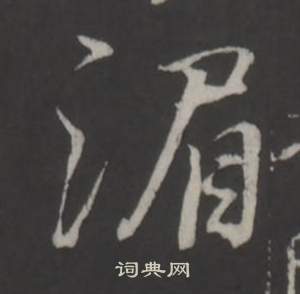 湄
词典网